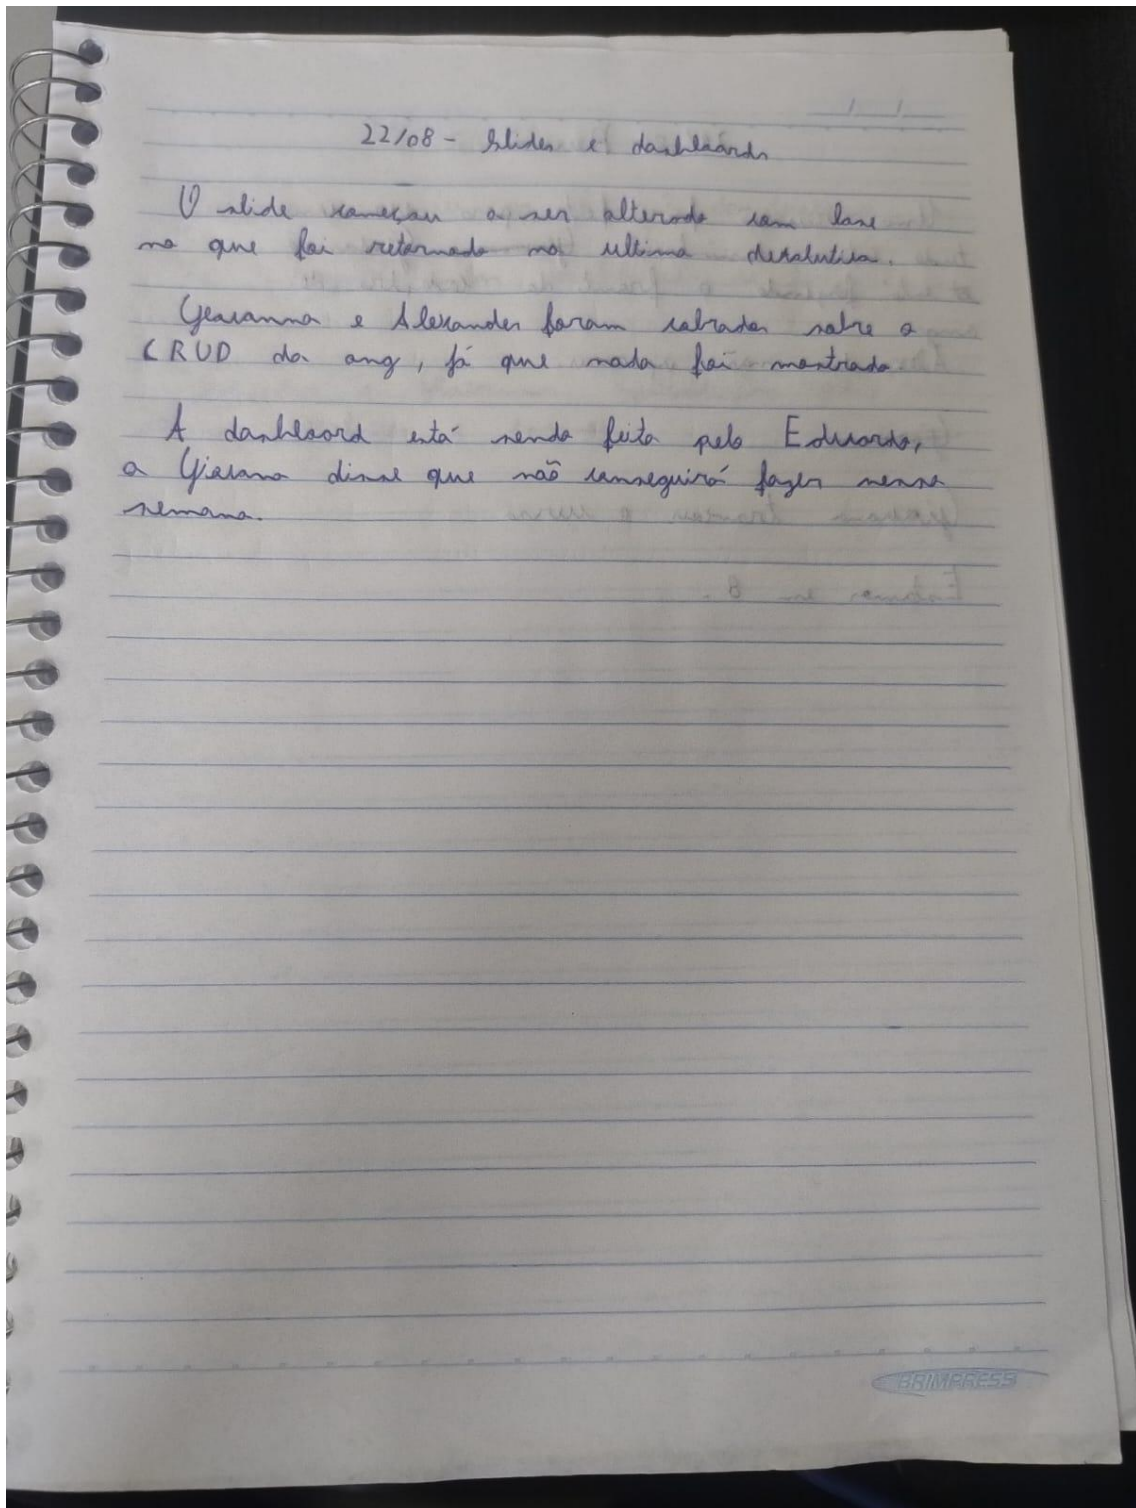 22/08 - Slides e dashboards
O slide começou a ser alterado com base
no que foi retornado na ultima devolutiva.
Geovanna e Alexander foram cobrados sobre o
CRUD da ong, já que nada foi mostrado.
A dashboard está sendo feita pelo Eduardo,
a Giovana disse que não conseguirá fazer nessa
semana.
BRIMPRESS